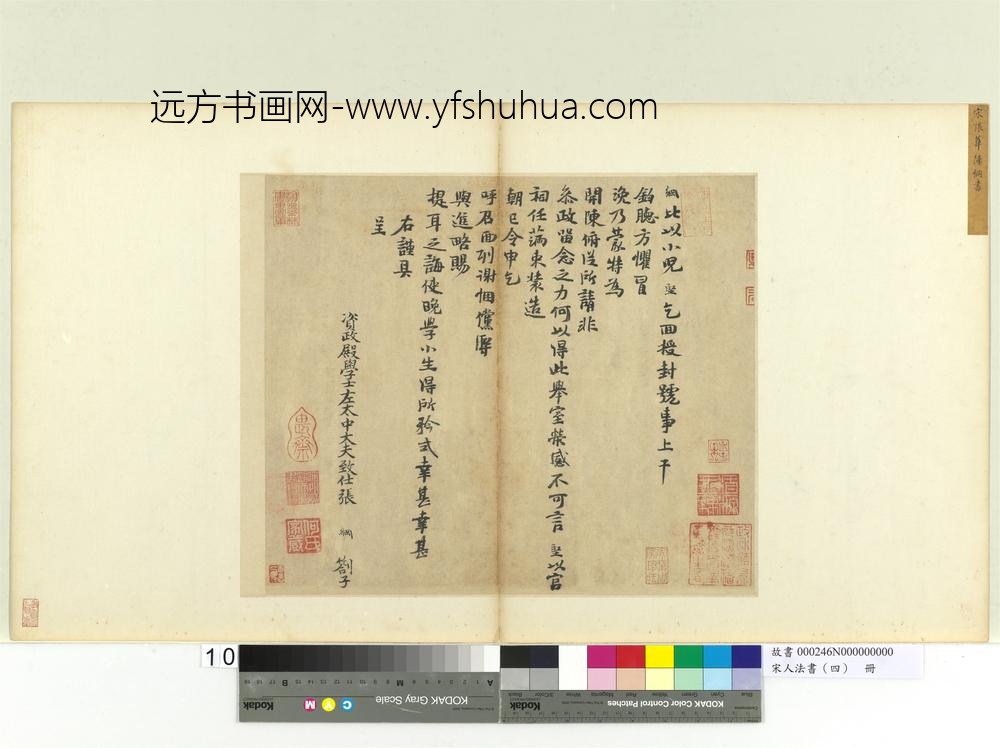 远方书画网-www.yfshuhua.com
綱比以小兒堅乞回授封號事上干
鈞聽方懼冒
浼乃蒙特為
開陳俯從所請非
參政留念之力何以得此舉室榮感不可言堅以宮
祠任滿束裝造
朝已令申乞
呼召面列謝悃儻辱
與進略賜
提耳之誨使晚學小生得所矜式幸甚幸甚
右謹具
呈
資政殿學士左太中大夫致仕張 綱 劄子
10
故書 000246N000000000
宋人法書（四） 冊
KODAK Gray Scale
Kodak
C
Y
M
A
B
KODAK Color Control Patches
Kodak
Blue
Cyan
Green
Yellow
Red
Magenta
White
3/Color
Black